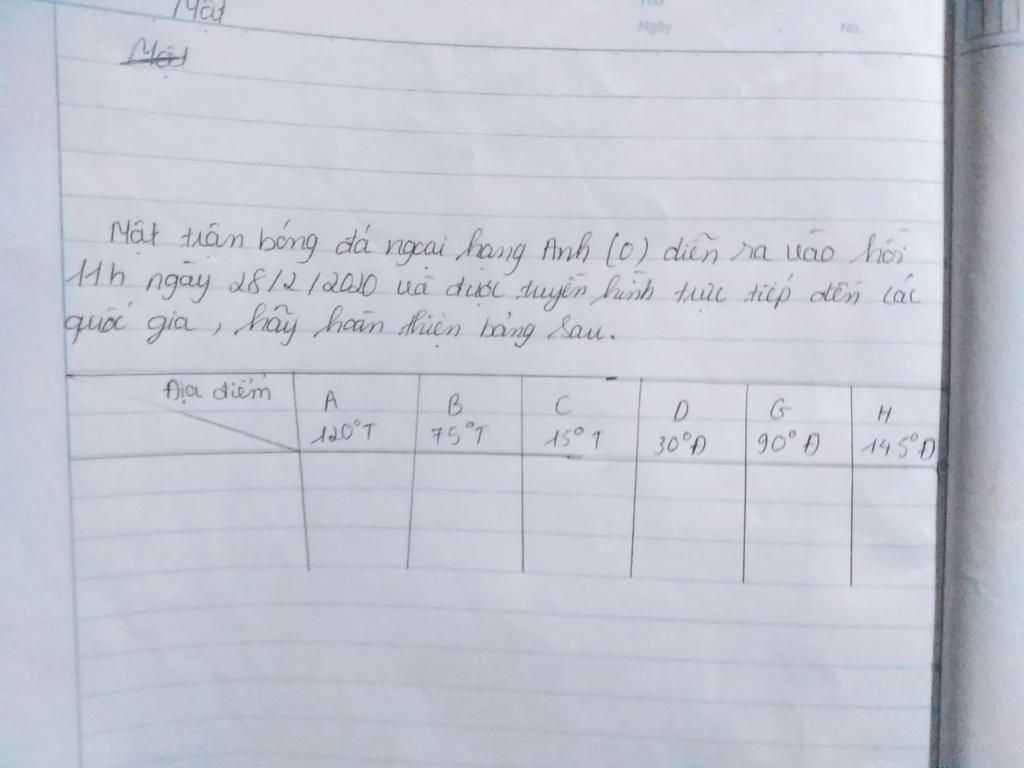 Một
Một
Thứ
Ngày No.
Một trận bóng đá ngoại hạng Anh (0) diễn ra vào hồi
11h ngày 28/2/2020 và được truyền hình trực tiếp đến các
quốc gia, hãy hoàn thiện bảng sau.
Địa điểm A B C D G H
120°T 75°T 15°T 30°Đ 90°Đ 145°Đ